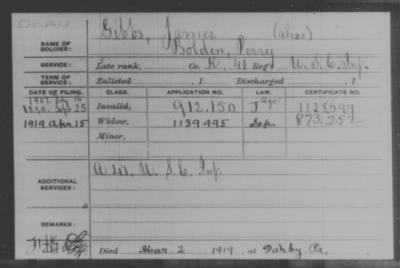 DEAD
Gibbs, James (alias)
NAME OF SOLDIER: Bolden, Perry
SERVICE: Late rank, Co. K, 41 Reg't U.S.C. Inf.
TERM OF SERVICE: Enlisted , 1 Discharged , 1
DATE OF FILING. CLASS. APPLICATION NO. LAW. CERTIFICATE NO.
1890. Apr 25 Invalid, 912.150 1128699
1919. Apr 15 Widow, 1139495 873.252
Minor,
ADDITIONAL SERVICES: U.S.C. Inf.
REMARKS:
Died Mar 2, 1919, at Darby, Pa.